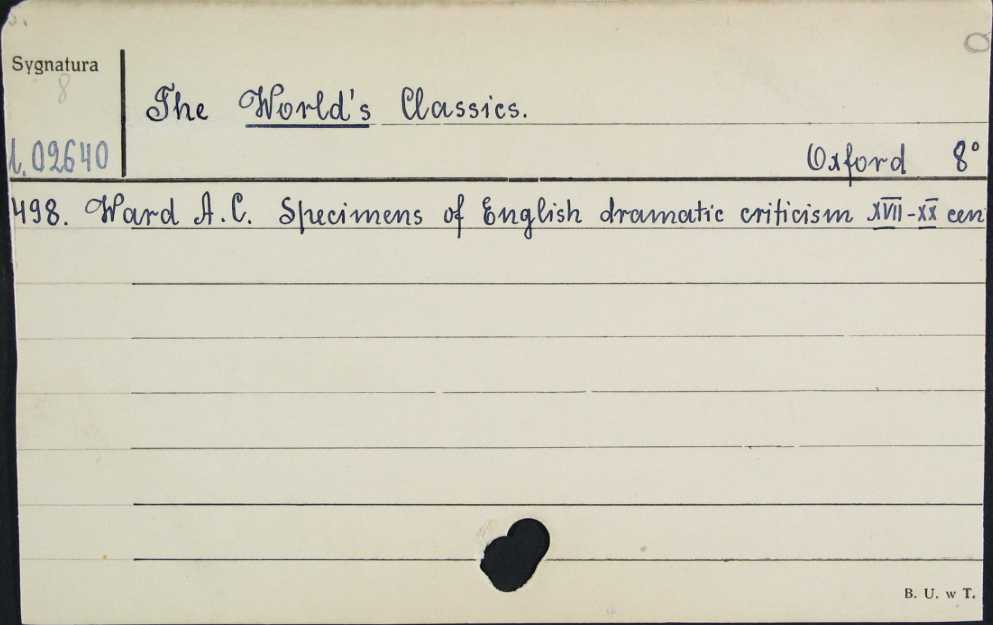 Sygnatura
8
The World's Classics.
02640
Oxford 8°
498. Ward A.C. Specimens of English dramatic criticism XVII-XX cen
B. U. w T.